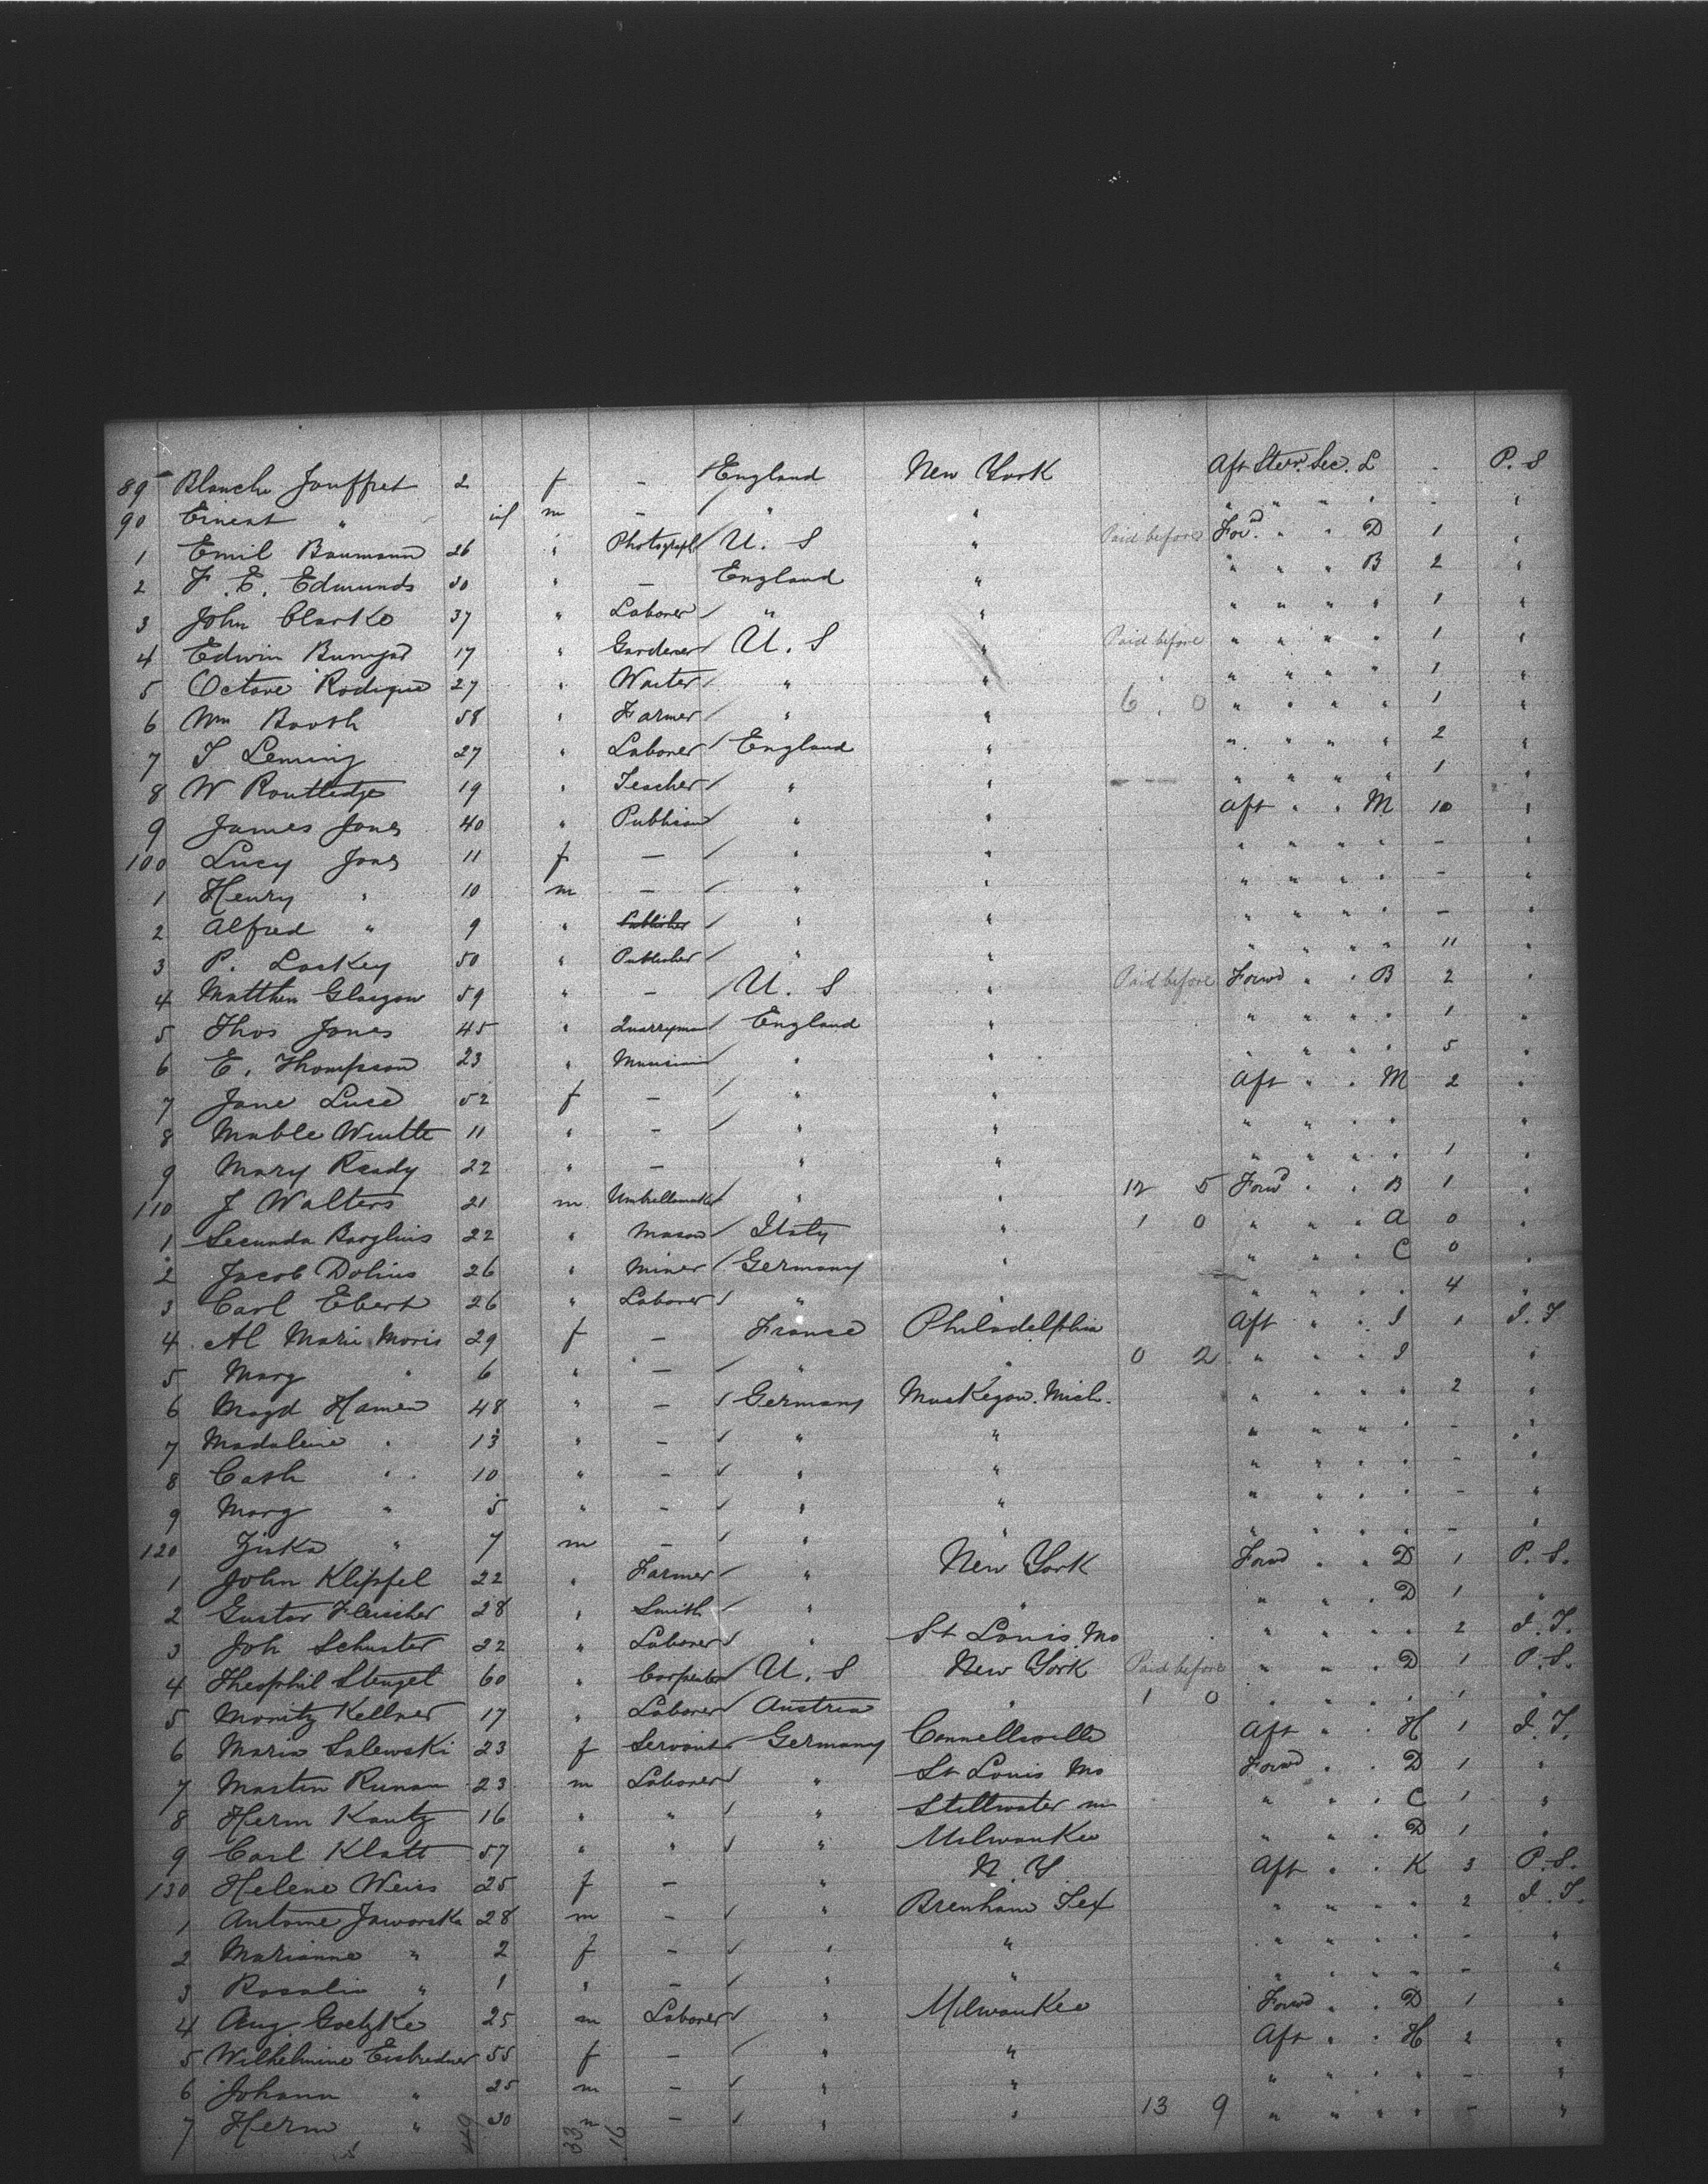 89 Blanche Jouffret 2 f - England New York Aft Steer. Sec. L - P. S
90 Ernest " inf m - " " " " " " - "
1 Emil Baumann 26 " Photograph U. S " Paid before For'd " " D 1 "
2 F. E. Edmunds 30 " - England " " " " B 2 "
3 John Clarke 37 " Laborer " " " " " " 1 "
4 Edwin 17 " Gardener U. S " Paid before " " " " 1 "
5 Octave Rodique 27 " Waiter " " " " " " 1 "
6 Wm Booth 58 " Farmer " " 6 . 0 " " " " 1 "
7 Leming 27 " Laborer England " " " " " 2 "
8 W Routledge 19 " Teacher " " " " " " 1 "
9 James Jones 40 " Publican " " Aft " " M 10 "
100 Lucy Jones 11 f - " " " " " " - "
1 Henry " 10 m - " " " " " " - "
2 Alfred " 9 " Publisher " " " " " " - "
3 P. Laskey 50 " Publisher " " " " " " 11 "
4 Matthew Glasgow 59 " - U. S " Paid before Forwd " " B 2 "
5 Thos Jones 45 " Quarryman England " " " " " 1 "
6 E. Thompson 23 " Musician " " " " " " 5 "
7 Jane Luce 52 f - " " Aft " " M 2 "
8 Mable 11 " - " " " " " " "
9 Mary Ready 22 " - " " " " " " 1 "
110 J Walters 21 m Umbrellamaker " " 12 5 Forwd " " B 1 "
1 Secunda 22 " Mason Italy " 1 0 " " " A 0 "
2 Jacob Dolius 26 " Miner Germany " " " " C 0 "
3 Carl Ebert 26 " Laborer " " " " " " 4 "
4 Al Marie Moris 29 f - France Philadelphia Aft " " I 1 I. T
5 Marg " 6 " - " " 0 2 " " " I "
6 Magd Hamen 48 " - Germany Muskegon. Mich. " " " " 2 "
7 Madaleine " 13 " - " " " " " " - "
8 Cath " 10 " - " " " " " " - "
9 Marg " 5 " - " " " " " " - "
120 Ziska " 7 m - " " " " " " - "
1 John Klipfel 22 " Farmer " New York Forwd " " D 1 P. S.
2 Gustav Fleischer 28 " Smith " " " " " D 1 "
3 Joh Schuster 22 " Laborer " St Louis Mo " " " " 2 I. T.
4 Theophil Stengel 60 " Carpenter U. S New York Paid before " " " D 1 P. S.
5 Moritz Kellner 17 " Laborer Austria " 1 0 " " " " 1 "
6 Maria Salewski 23 f Servant Germany Connellsville Aft " " H 1 I. T.
7 Martin Runau 23 m Laborer " St Louis Mo Forwd " " D 1 "
8 Herm Kautz 16 " " " Stillwater m " " " C 1 "
9 Carl Klatt 57 " " " Milwaukee " " " D 1 "
130 Helene Weiss 25 f - " N. Y. Aft " " K 3 P. S.
1 Antonie Jaworska 28 m - " Brenham Tex " " " " 2 I. T.
2 Marianne " 2 f - " " " " " " - "
3 Rosalie " 1 " - " " " " " " - "
4 Aug. Goetzke 25 m Laborer " Milwaukee Forwd " " D 1 "
5 Wilhelmine 55 f - " " Aft " " H 2 "
6 Johann " 25 m - " " " " " " - "
7 Herm " 30 m - " " 13 9 " " " " - "
449 33 16